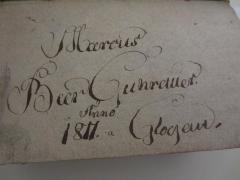 Marcus
Beer Guhrauer.
Anno
1817. a Glogau.